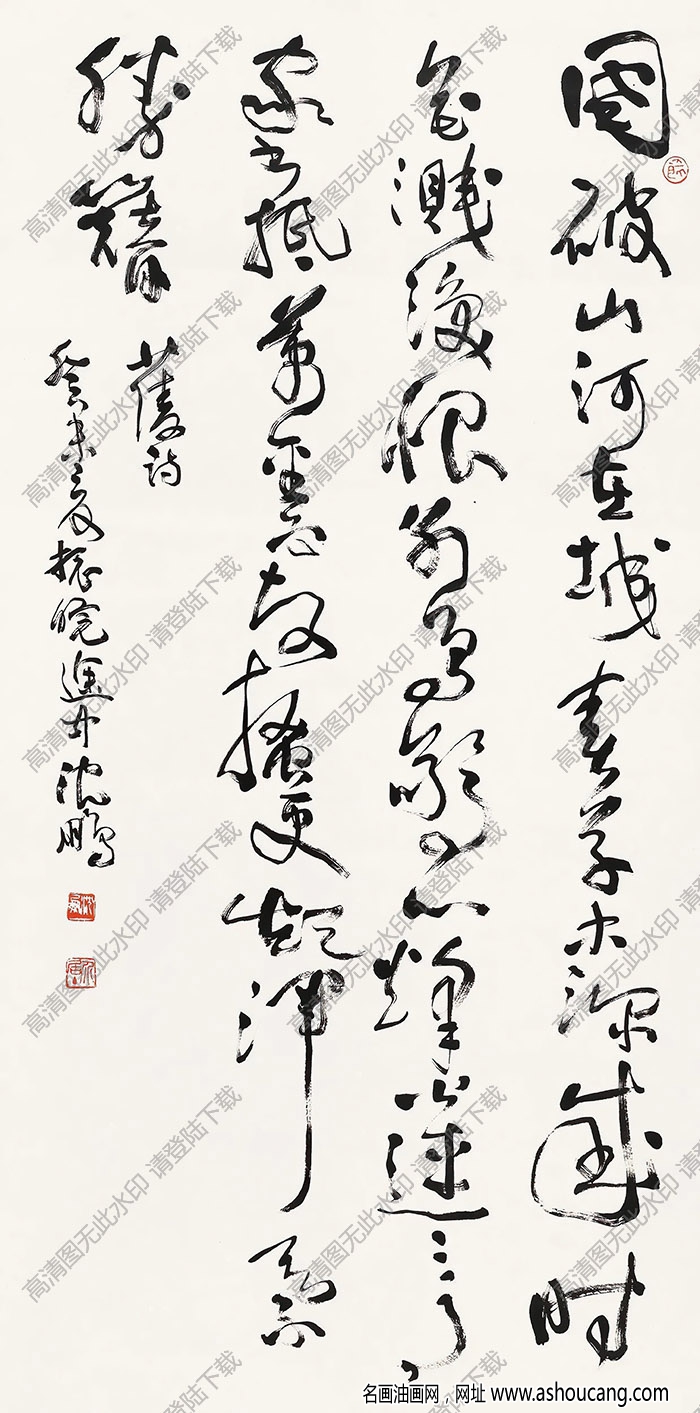 國破山河在城春草木深感時
花濺淚恨別鳥驚心烽火連三月
家書抵萬金白頭搔更短渾欲不
勝簪
少陵詩
癸未 途中沈鵬
高清图无此水印 请登陆下载
名画油画网，网址 www.ashoucang.com